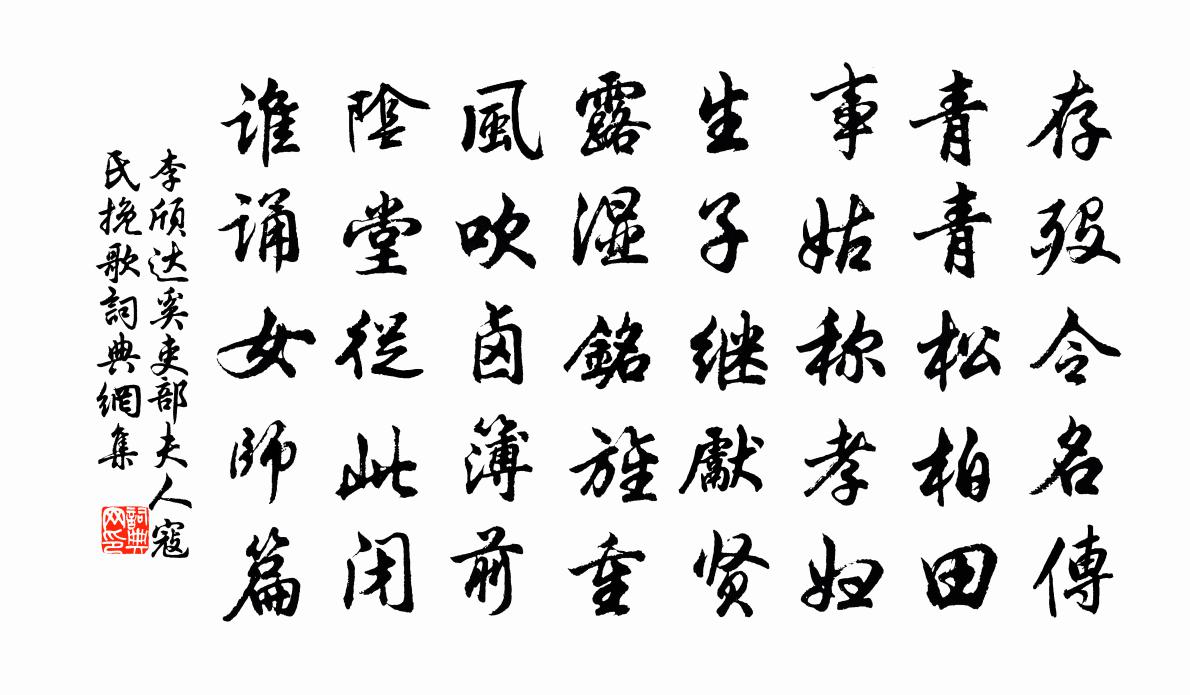 存歿令名傳
青青松柏田
事姑称孝妇
生子继獻贤
露湿銘旌重
風吹卤簿前
陰堂從此闭
谁诵女师篇
李颀达奚吏部夫人寇
氏挽歌詞典網集
詞典
网印